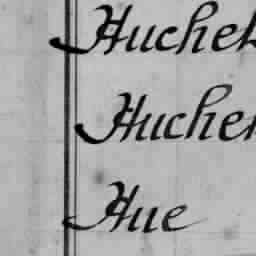 Huchet
Hucher
Hue